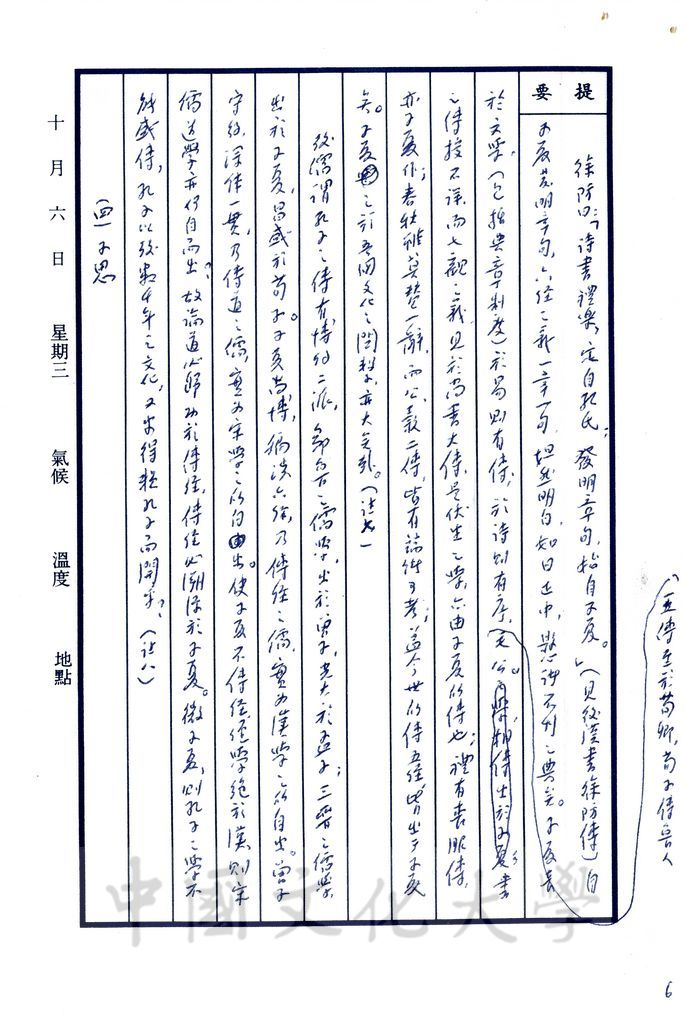 提要
徐防曰:「詩書禮樂,定自孔氏;發明章句,始自子夏。」(見後漢書徐防傳)自
子夏發明章句,六經之義一章一句,坦然明白,如日正中,懸諸不刊之典矣。子夏長
於文學,(包括典章制度)於易則有傳,於詩則有序,(毛公之學相傳出於子夏)書
五傳至於荀卿,荀子傳魯人
之傳授不詳,而七觀之義,見於尚書大傳,是伏生之學,亦由子夏所傳也;禮有喪服傳,
亦子夏作;春秋雖莫贊一辭,而公、穀二傳,皆有端緒可考;蓋今世所傳五經,皆出于子夏
矣。子夏之於吾國文化之關係,亦大矣哉。(註七)
後儒謂孔子之傳有博約二派,鄒魯之儒學,出於曾子,光大於孟子;三晉之儒學,
出於子夏,昌盛於荀子。子夏尚博,徧決六經,乃傳經之儒,實為漢學之所自出。曾子
守約,深体一貫,乃傳道之儒,實為宋學之所自出。使子夏不傳經,經學絕於漢,則宋
儒道學亦何自而出?故論道必歸功於傳經,傳經必溯源於子夏。微子夏,則孔子之學不
能盛傳,孔子以後數千年之文化,又安得程孔子而開乎?(註八)
(四)子思
十月六日 星期三 氣候 溫度 地點
中國文化大學
6